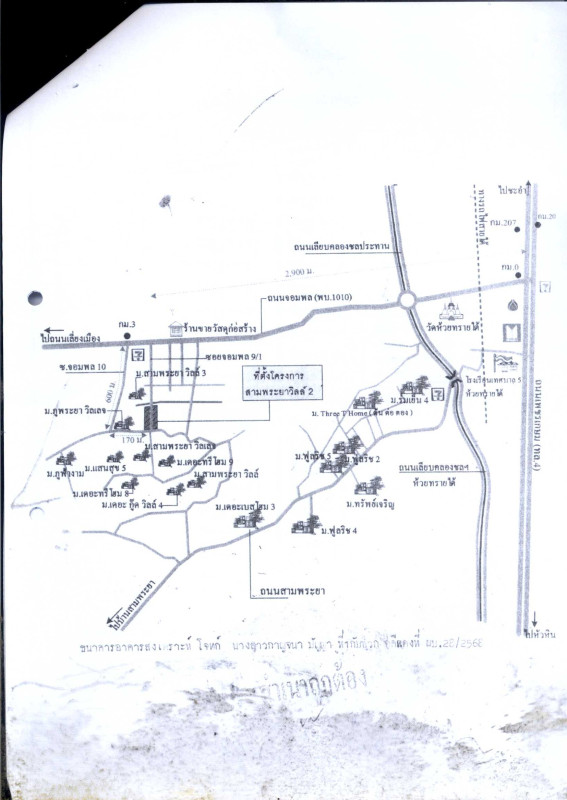 ไปชะอำ
กม.207
กม.0
ทางรถไฟสายใต้
ถนนเลียบคลองชลประทาน
2,900 ม.
ถนนจอมพล (พบ.1010)
ร้านขายวัสดุก่อสร้าง
วัดห้วยทรายใต้
กม.3
ไปถนนเลี่ยงเมือง
ซ.จอมพล 10
ซอยจอมพล 9/1
ม.สามพระยา วิลล์ 3
ที่ตั้งโครงการ
สามพระยาวิลล์ 2
600 ม.
โรงเรียนเทศบาล 5
ห้วยทรายใต้
ม.ภูพระยา วิลเลจ
ม.ร่มเย็น 4
ม. Three T Home
170 ม.
ม.สามพระยา วิลเลจ
ถนนเพชรเกษม (ทล.4)
ม.ภูฟ้างาม
ม.แสนสุข 5
ม.เดอะทรีโฮม 9
ม.ฟูลริช 5
ม.ฟูลริช 2
ถนนเลียบคลองชลฯ
ห้วยทรายใต้
ม.เดอะทรีโฮม 8
ม.สามพระยา วิลล์
ม.เดอะ กู๊ด วิลล์ 4
ม.ทรัพย์เจริญ
ม.เดอะเบสโฮม 3
ม.ฟูลริช 4
ถนนสามพระยา
ไปบ้านสามพระยา
ไปหัวหิน
ธนาคารอาคารสงเคราะห์ โจทก์ นางสาวกาญจนา
สำเนาถูกต้อง